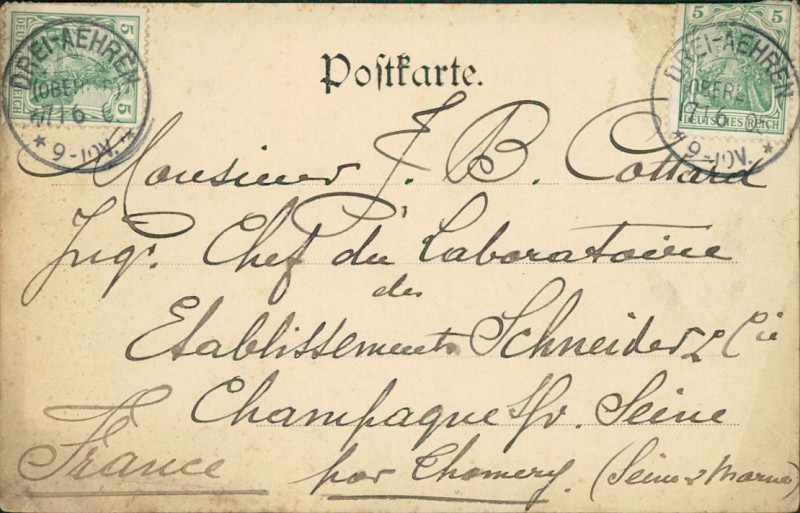 5 5
DREI-AEHREN
(OBER
17/6
* 9-10V. *
Postkarte.
5 5
DEUTSCHES REICH
DREI-AEHREN
(OBERE
17/6 05
* 9-10V. *
Monsieur J. B. Cottard
Ingr. Chef du Laboratoire
des
Etablissements Schneider & Cie
Champagne s/r. Seine
par Thomery. (Seine & Marne)
France